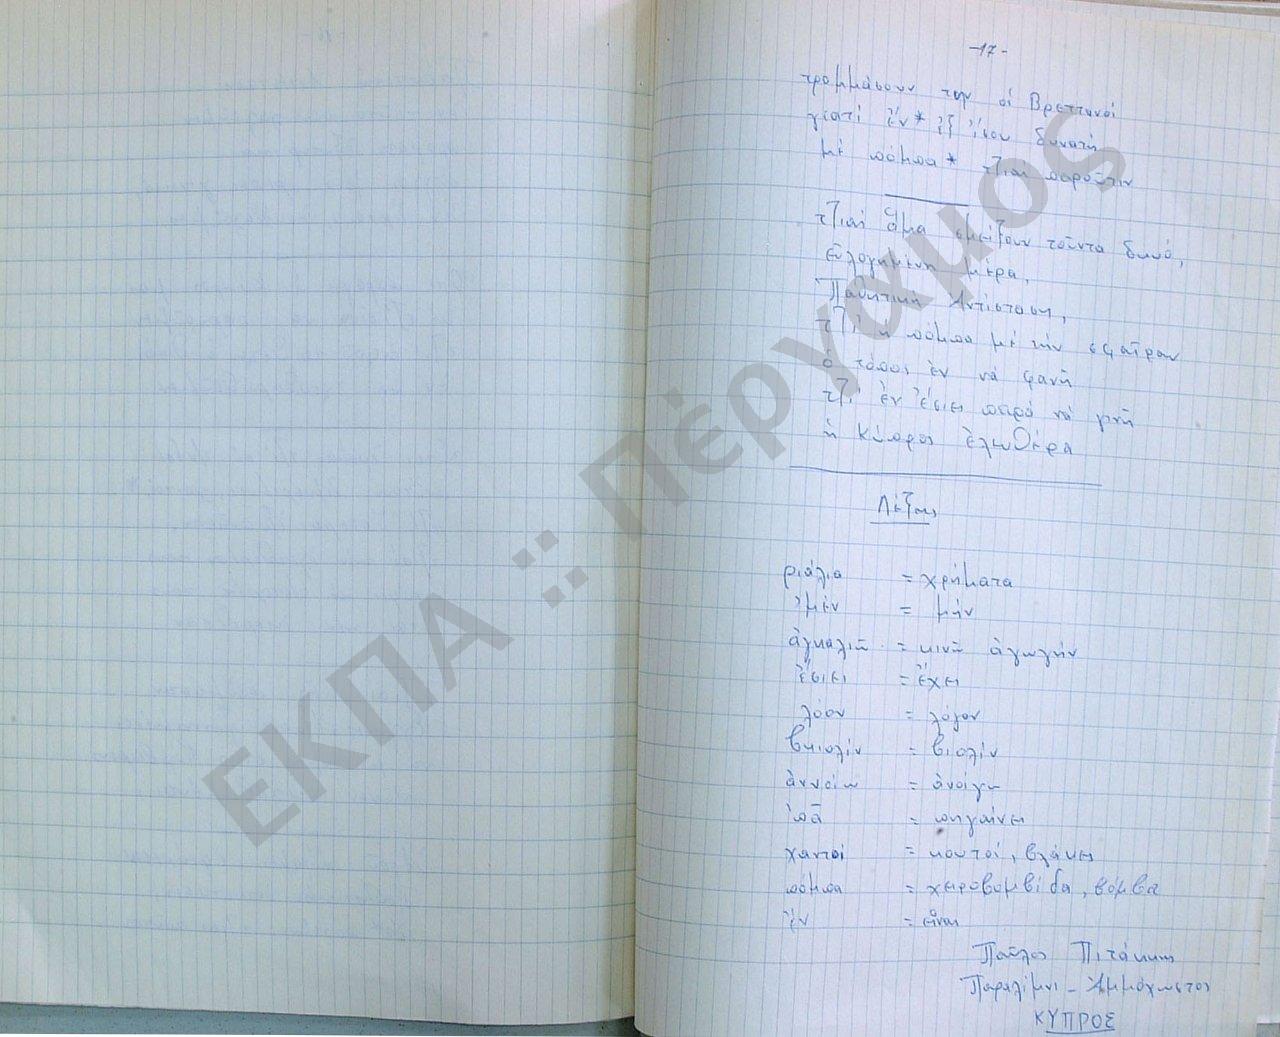 -17-
τρομμάσουν την οἱ Βρεττανοί
γιατί ἔν* ἐξ ἴσου δυνατή
μέ πόμπα* τζιαί παρούτιν
τζιαί ἅμα σμίξουν τοῦντα δκυό,
εὐλογημένη μέρα,
Παθητική Ἀντίσταση,
τζι' ἡ πόμπα μέ τήν σφαῖραν
ὁ τόπος ἐν νά φανῆ
τζι' ἐν ἔσιει παρά νά γινῆ
ἡ Κύπρος ἐλευθέρα
Λέξεις
ριάλια = χρήματα
'μέν = μήν
ἀγκαλιῶ = κινῶ ἀγωγήν
ἔσιει = ἔχει
λόον = λόγον
βκιολίν = βιολίν
ἀννοίω = ἀνοίγω
'πᾶ = πηγαίνει
χαντοί = κουτοί, βλάκες
πόμπα = χειροβομβίδα, βόμβα
ἔν = εἶναι
Παῦλος Πιτάκκης
Παραλίμνι - Ἀμμόχωστος
ΚΥΠΡΟΣ
ΕΚΠΑ :: Πέργαμος